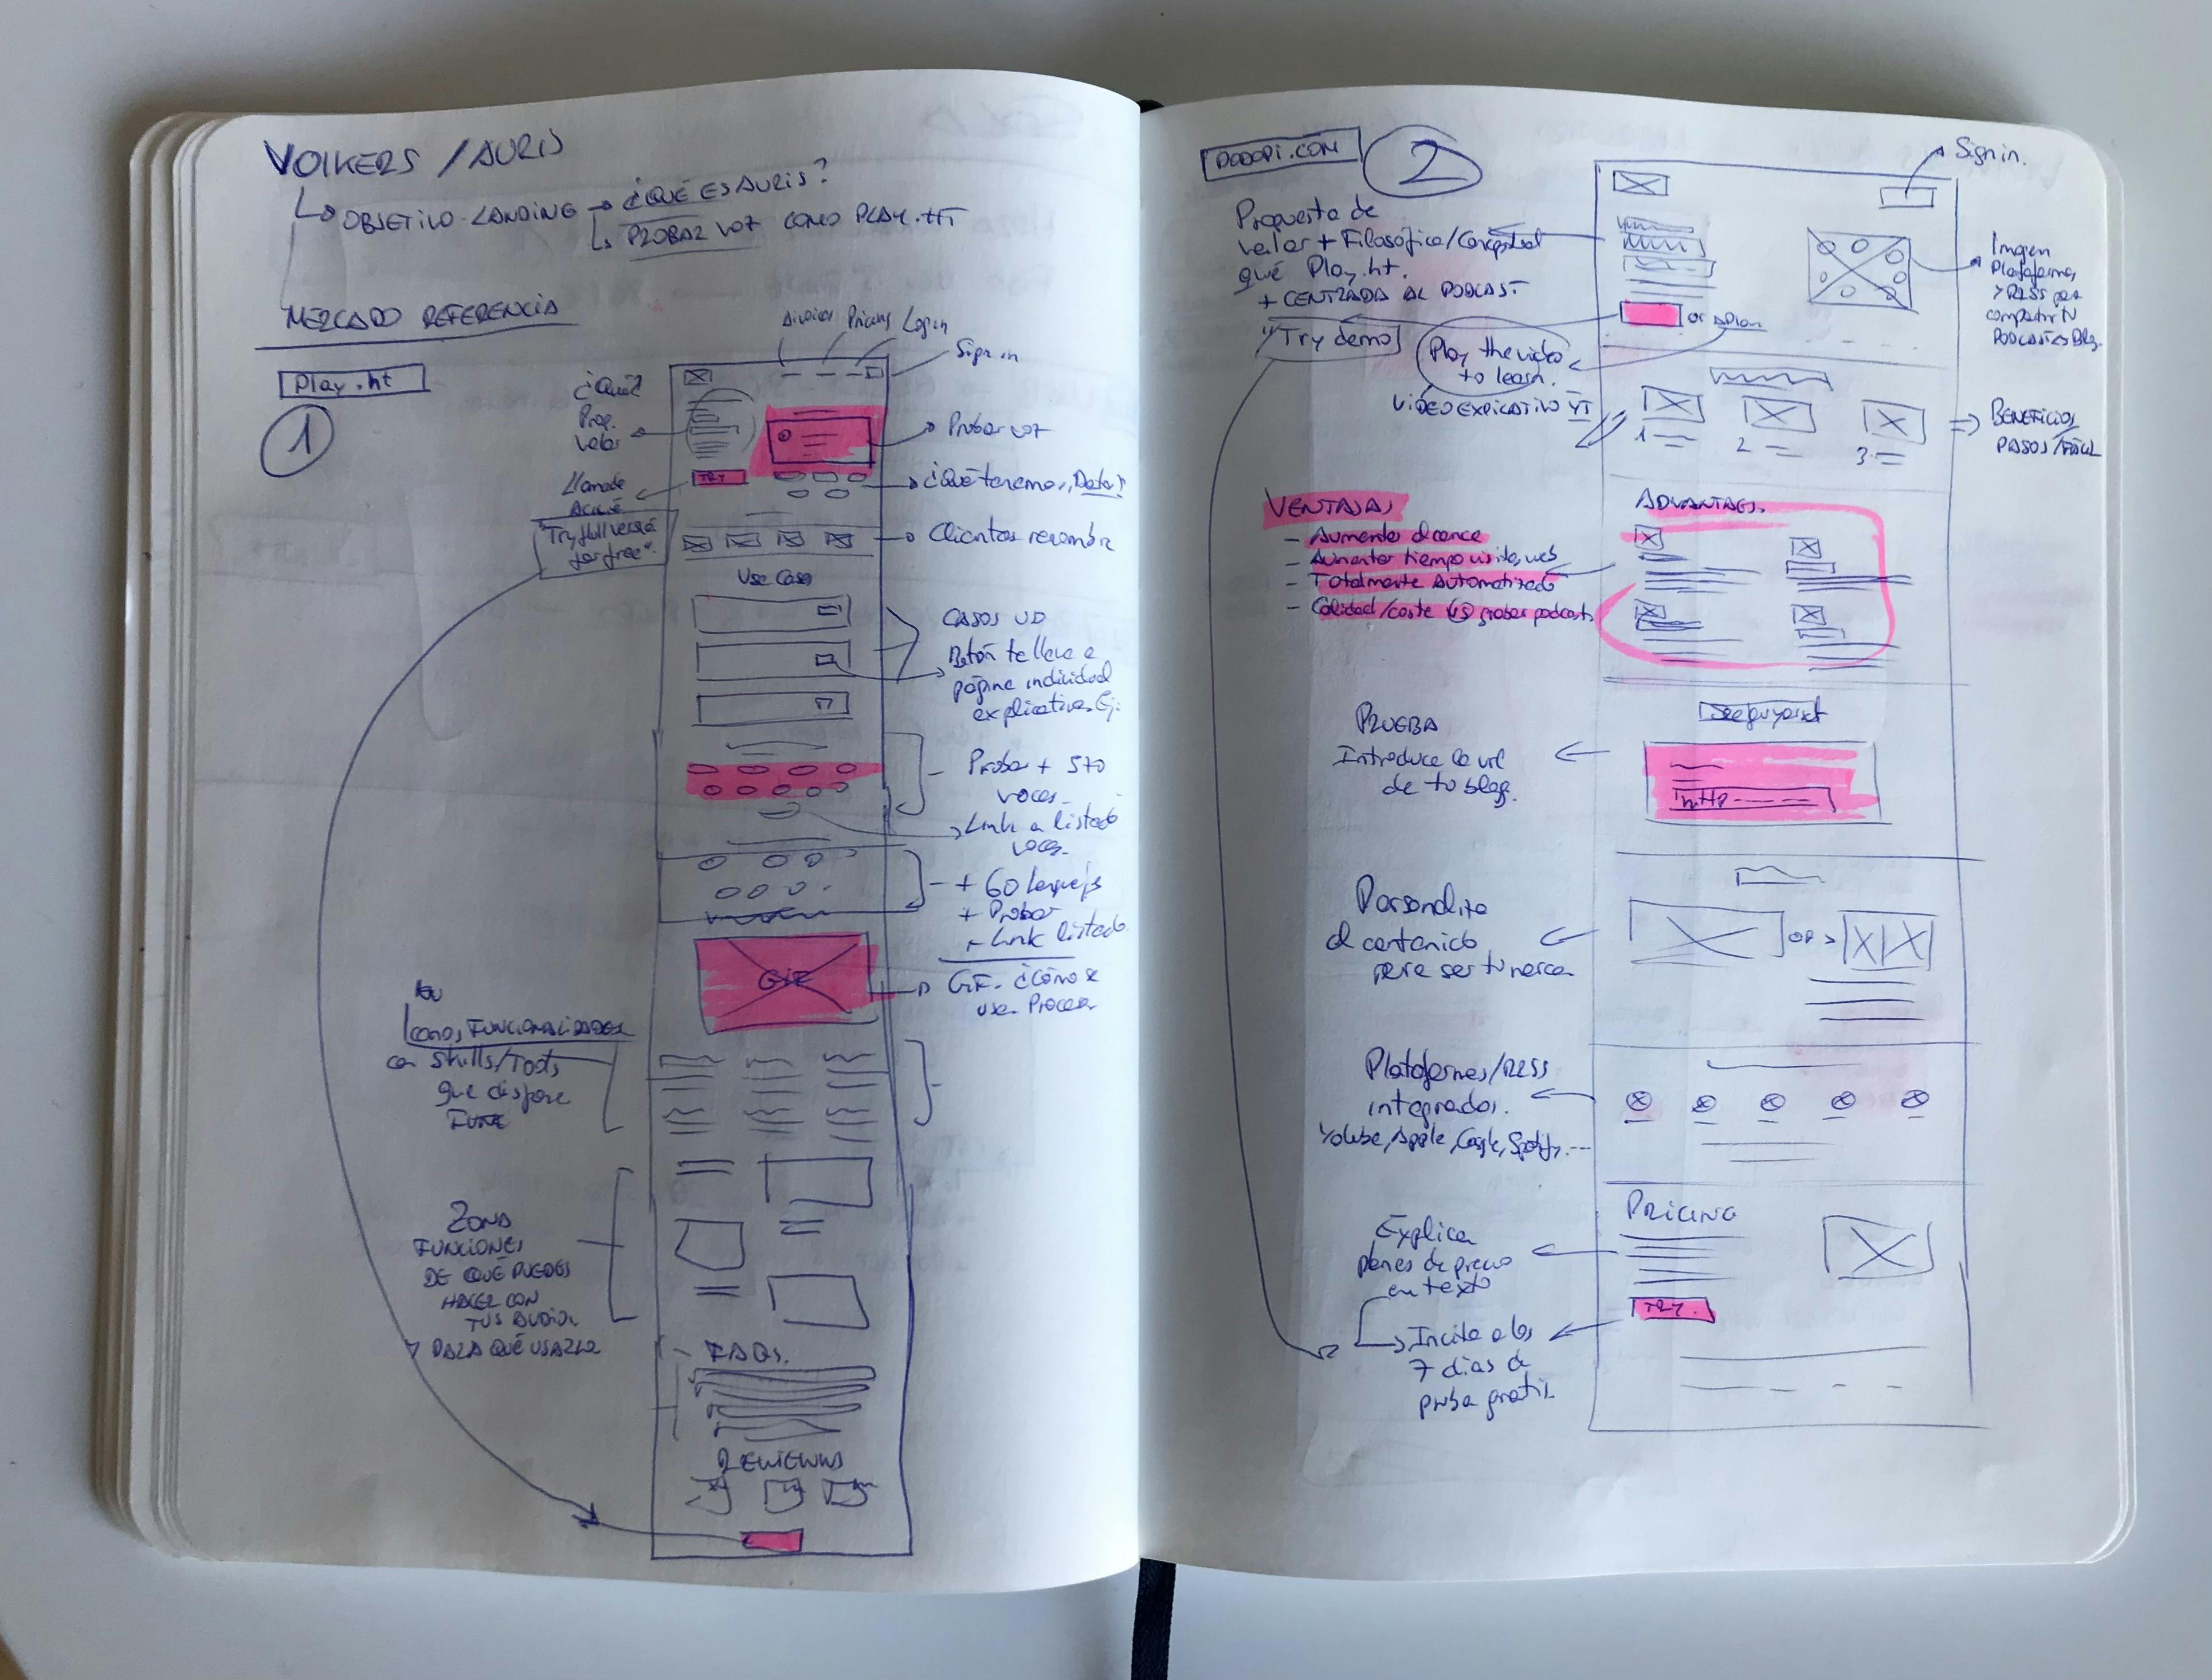 VOIKERS / AURIS
OBJETIVO - LANDING
¿QUÉ ES AURIS?
PROBAR VOZ COMO PLAY.HT
MERCADO REFERENCIA
Play.ht
1
Pricing Login
Sign in
¿Qué?
Prop.
valor
Probar voz
TRY
"Try full versió
for free".
Clientes renombre
Use Case
CASOS USO
Botón te lleva a
página individual
explicativa. Ej:
Probar + 570
voces
Link a listado
voces
+ 60
+ Probar
+ Link listado
GIF
GIF. ¿Cómo se
usa. Proceso
Iconos FUNCIONALIDADES
con Skills/Tools
que dispone
ZONA
FUNCIONES
DE QUÉ PUEDES
HACER CON
TUS AUDIOS
Y PARA QUÉ USARLO
FAQs.
REVIEWS
PODOPI.COM
2
Sign in.
Propuesta de
valor + Filosófica/Conceptual
qué Play.ht.
+ CENTRADA AL PODCAST
"Try demo"
or
Play the video
to learn.
VIDEO EXPLICATIVO YT
Imagen
Plataformas
y RSS para
compartir tu
PODCAST
1
2
3
BENEFICIOS
PASOS/FÁCIL
VENTAJAS
- Aumentar alcance
- Aumentar tiempo visita web
- Totalmente Automatizado
- Calidad/coste vs grabar podcast
ADVANTAGES.
PRUEBA
Introduce la url
de tu blog.
http
Personaliza
el contenido
para ser tu marca
OR >
Plataformas/RSS
integradas.
Youtube, Apple, Google, Spotify, ...
PRICING
Explica
planes de precio
en texto
TRY.
Incita a los
7 días de
prueba gratis